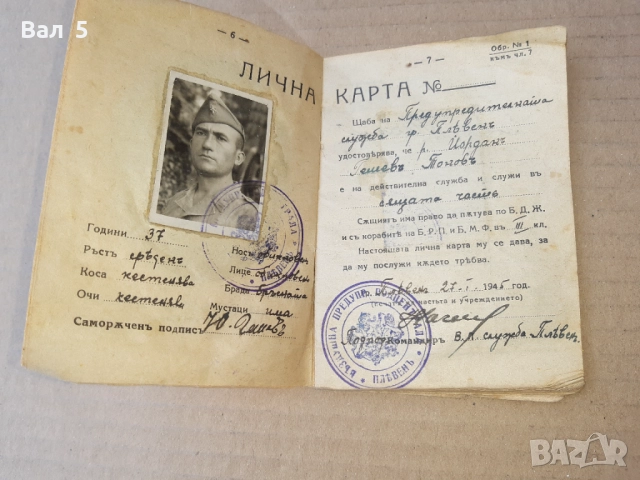 Вал 5
— 6 —
ЛИЧНА
Години 37
Ръстъ срѣденъ
Коса кестенява
Очи кестеняви
Носъ
Лице
Брада
Мустаци има
Саморѫченъ подписъ
— 7 —
Обр. № 1
къмъ чл. 7
КАРТА №
Щаба на Предупредителната
служба гр. Плѣвенъ
удостовѣрява, че р. Йорданъ
Гешевъ Тоновъ
е на действителна служба и служи въ
сѫщата часть
Сѫщиятъ има право да пѫтува по Б. Д. Ж.
и съ корабитѣ на Б. Р. П. и Б. М. Ф. въ III кл.
Настоящата лична карта му се дава, за
да му послужи кѫдето трѣбва.
27-I-1945 год.
Командиръ В. П. служба - Плѣвен
ПЛѢВЕНЪ
ВЪЗДУШНА
ПЛѢВЕНЪ
BAZAR